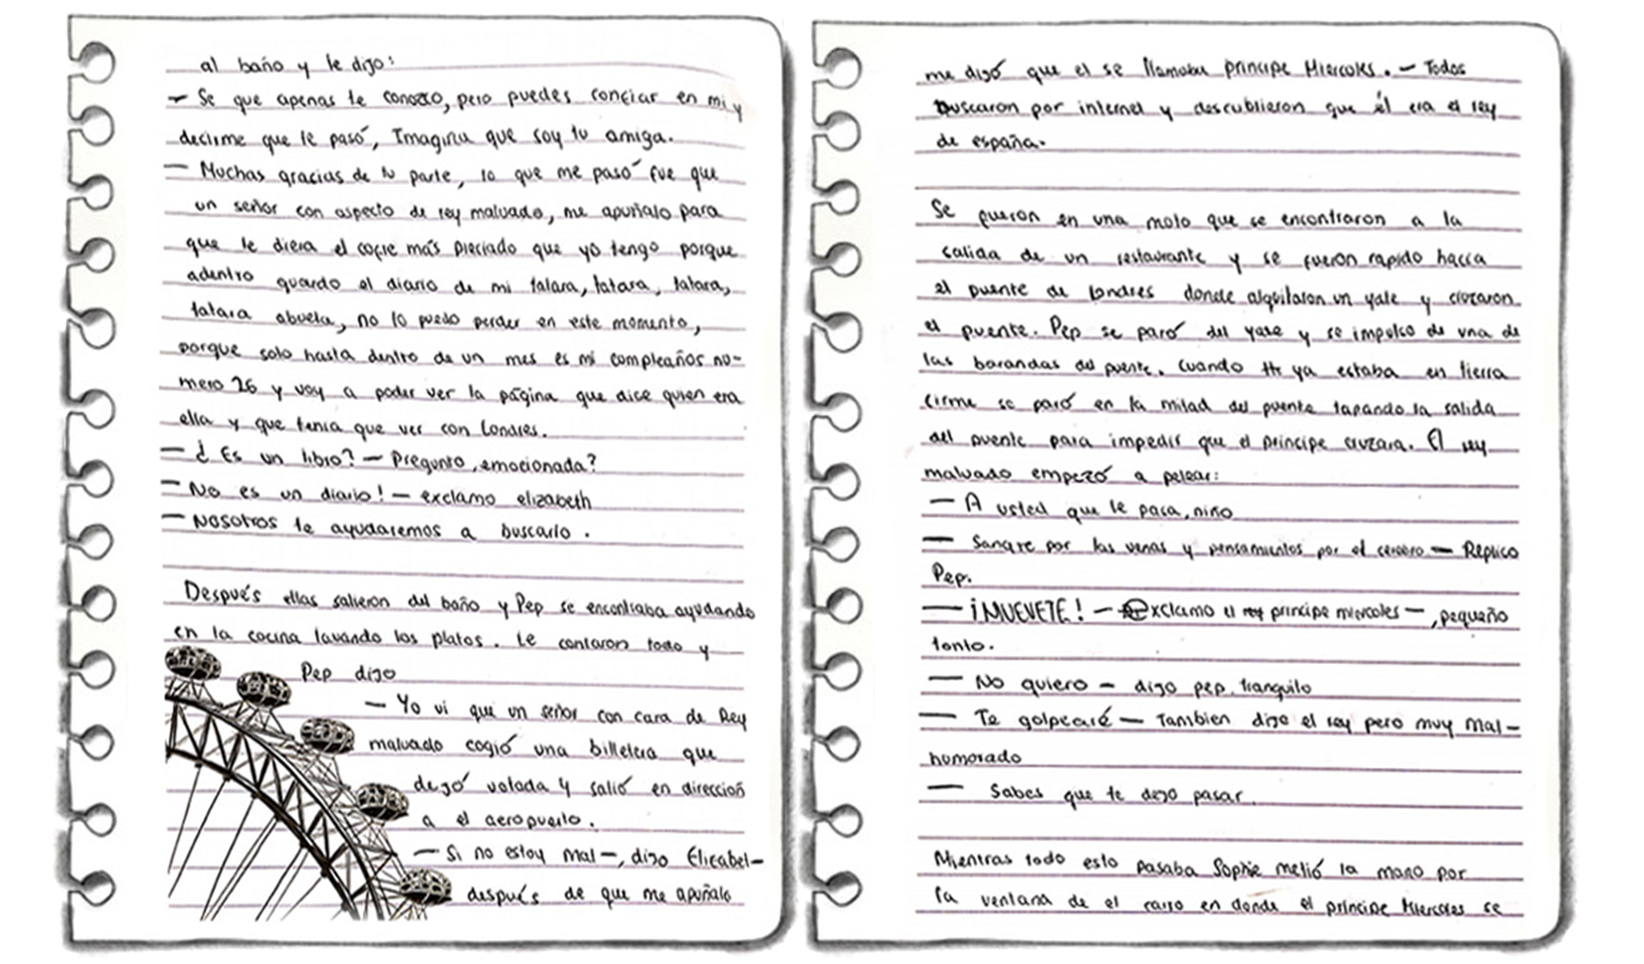 al baño y le dijo:
— Se que apenas te conozco, pero puedes confiar en mi y
decirme que te pasó, Imagina que soy tu amiga.
— Muchas gracias de tu parte, lo que me pasó fue que
un señor con aspecto de rey malvado, me apuñalo para
que le diera el cofre más preciado que yo tengo porque
adentro guardo el diario de mi tatara, tatara, tatara,
tatara abuela, no lo puedo perder en este momento,
porque solo hasta dentro de un mes es mi compleaños nu-
mero 26 y voy a poder ver la página que dice quien era
ella y que tenia que ver con Londres.
— ¿ Es un libro? — Pregunto, emocionada?
— No es un diario! — exclamo elizabeth
— Nosotros te ayudaremos a buscarlo.
Después ellas salieron del baño y Pep se encontraba ayudando
en la cocina lavando los platos. Le contaron todo y
Pep dijo
— Yo vi que un señor con cara de Rey
malvado cogió una billetera que
dejó votada y salió en dirección
a el aeropuerto.
— Si no estoy mal —, dijo Elizabet—
después de que me apuñalo
me dijó que el se llamaba principe Miercoles. — Todos
buscaron por internet y descubrieron que él era el rey
de españa.
Se fueron en una moto que se encontraron a la
salida de un restaurante y se fueron rapido hacia
el puente de Londres donde alquilaron un yate y cruzaron
el puente. Pep se paró del yate y se impulso de una de
las barandas del puente. Cuando ya estaba en tierra
firme se paró en la mitad del puente tapando la salida
del puente para impedir que el principe cruzara. El rey
malvado empezó a pelear:
— A usted que le pasa, niño
— Sangre por las venas y pensamientos por el cerebro — Replico
Pep.
— ¡MUEVETE! — exclamo el principe miercoles —, pequeño
tonto.
— No quiero — dijo pep, tranquilo
— Te golpearé — Tambien dijo el rey pero muy mal-
humorado
— Sabes que te dejo pasar.
Mientras todo esto pasaba Sophie metió la mano por
la ventana de el carro en donde el principe Miercoles se